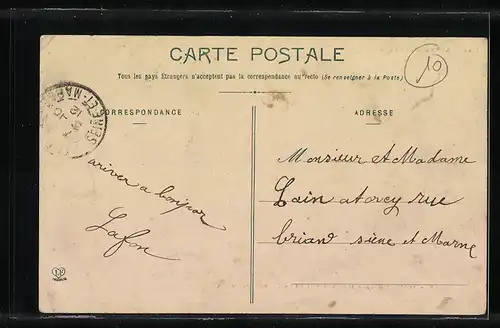 CARTE POSTALE
Tous les pays Étrangers n'acceptent pas la correspondance au recto (Se renseigner à la Poste)
10
CORRESPONDANCE
ADRESSE
SEINE-ET-MARNE
ariver a bonpor
Lafon
Monsieur et Madame
Lain a torcy rue
briand siene et Marne